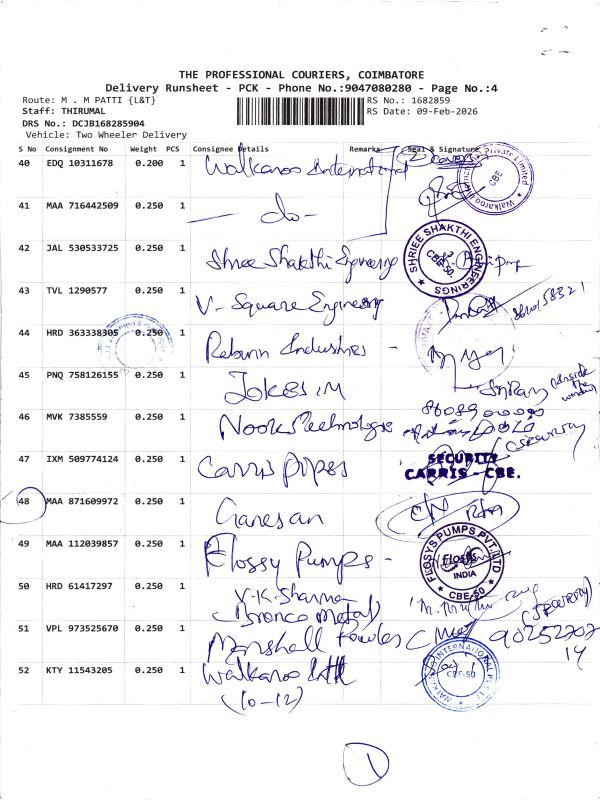 THE PROFESSIONAL COURIERS, COIMBATORE
Delivery Runsheet - PCK - Phone No.:9047080280 - Page No.:4
Route: M . M PATTI {L&T}
RS No.: 1682859
Staff: THIRUMAL
RS Date: 09-Feb-2026
DRS No.: DCJB168285904
Vehicle: Two Wheeler Delivery
S No Consignment No Weight PCS Consignee Details Remarks Seal & Signature
40 EDQ 10311678 0.200 1 Walkaroo International
Walkaroo International Private Limited CBE
41 MAA 716442509 0.250 1 - do -
42 JAL 530533725 0.250 1 Shree Shakthi Engineering
SHRIEE SHAKTHI ENGINEERINGS CBE-50.
43 TVL 1290577 0.250 1 V- Square Engineering
44 HRD 363338305 0.250 1 Industries -
45 PNQ 758126155 0.250 1
46 MVK 7385559 0.250 1
(Security)
47 IXM 509774124 0.250 1 Carris pipes
SECURITY
CARRIS - CBE.
48 MAA 871609972 0.250 1 Ganesan
49 MAA 112039857 0.250 1 Flossy Pumps -
FLOSYS PUMPS PVT. LTD Flosys INDIA CBE-50
50 HRD 61417297 0.250 1 V.K. Sharma
(Bronco Metal)
(Security)
51 VPL 973525670 0.250 1 Marshell Fowles
90252202
14
52 KTY 11543205 0.250 1 Walkaroo
WALKAROO INTERNATIONAL PVT LTD CBE-50
(10-12)
1